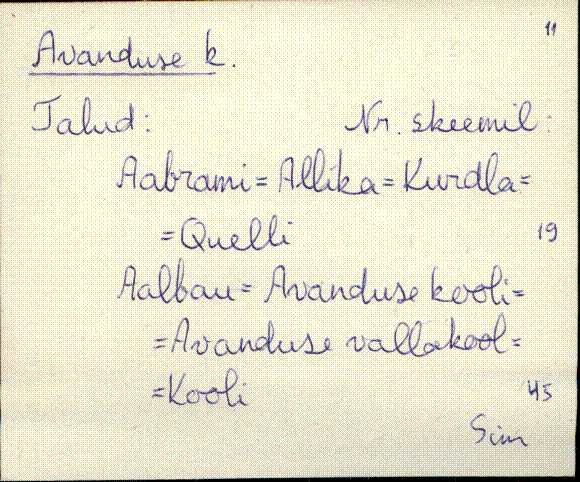 11
Avanduse k.
Talud: Nr. skeemil:
Aabrami = Allika = Kurdla =
= Quelli 19
Aalbau = Avanduse kooli =
= Avanduse vallakool =
= Kooli 45
Sim